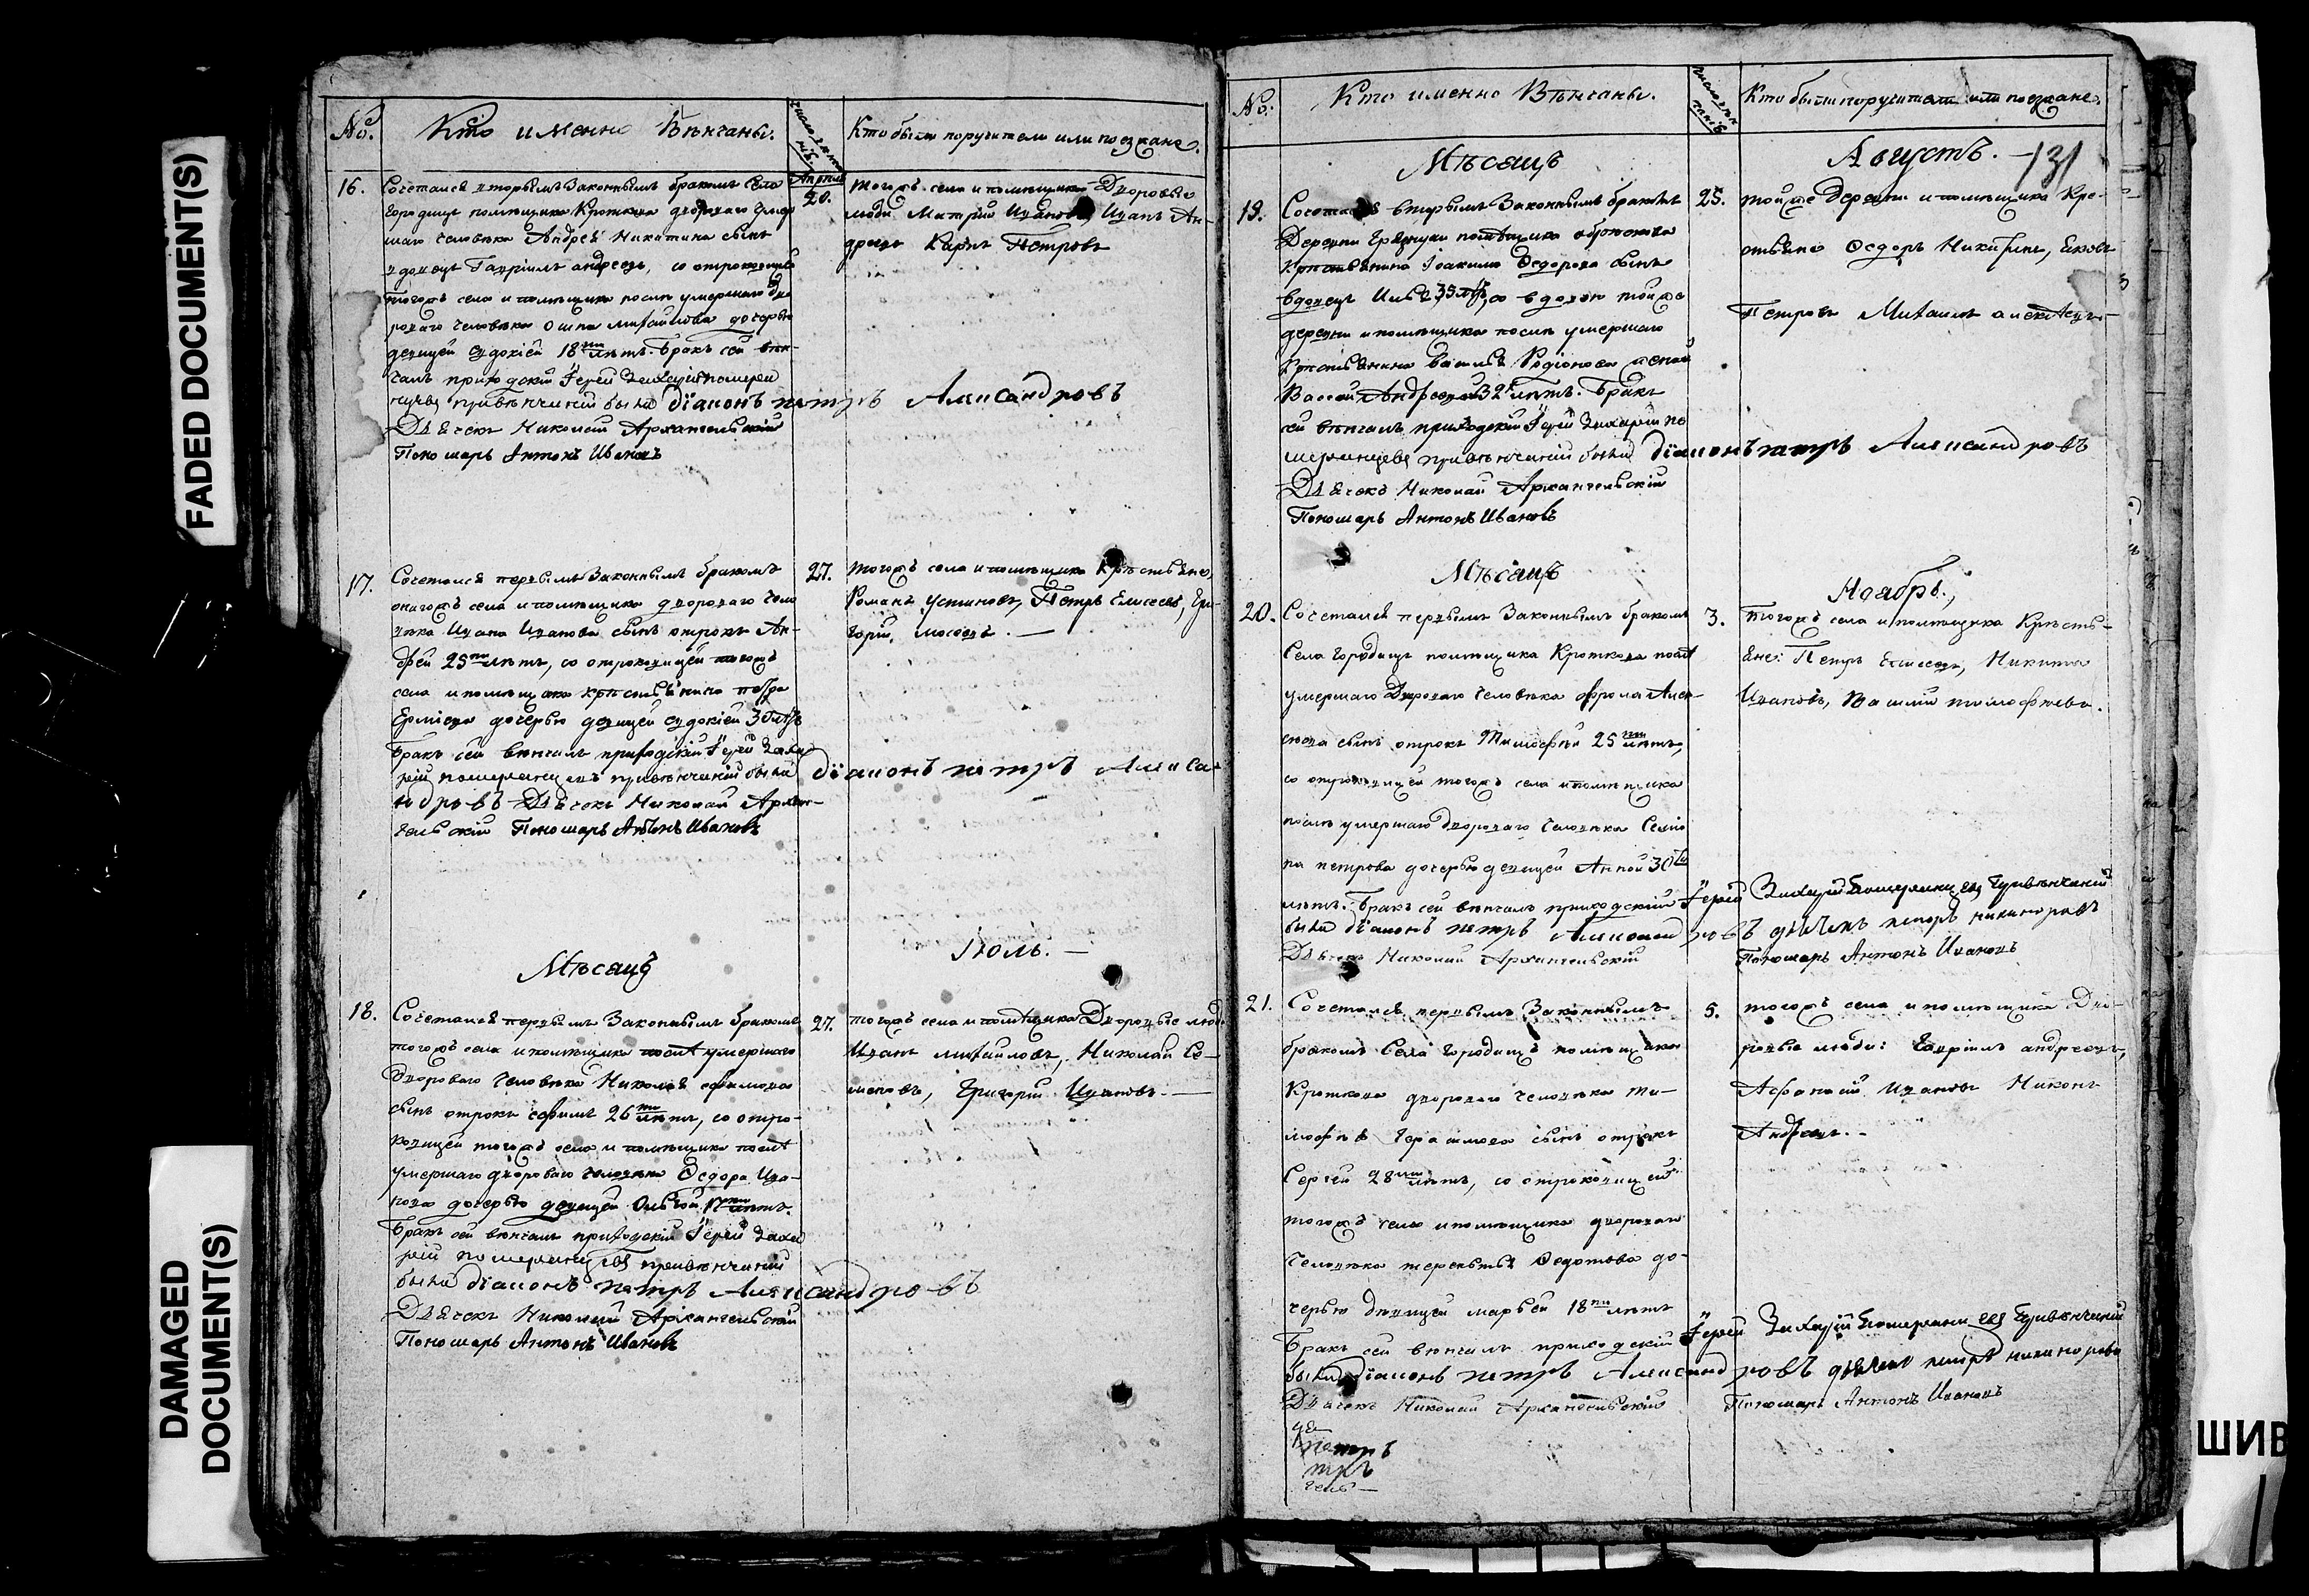 FADED DOCUMENT(S)
DAMAGED
DOCUMENT(S)
ШИВ
№.
Кто именно Вѣнчаны.
Кто были поручители или поезжане.
Апрѣля
16.
Сочетался вторымъ Законнымъ бракомъ Села
Городищъ помѣщика Кроткова двороваго умер
шаго человѣка Андрея Никитина сынъ
вдовецъ Гавріилъ андреевъ, со отроковицей
тогожъ села и помѣщика послѣ умершаго дво
роваго человѣка михайлова дочерью
девицей Евдокіей 18ти лѣтъ. Бракъ сей вѣн-
чалъ приходскій Іерей Захарій померан
цевъ привѣнчаніи были діаконъ петръ Александровъ
Дьячекъ Николай Архангельскій
Пономарь Антонъ Ивановъ
20.
тогожъ села и помѣщика Дворовые
люди, Матвѣй Ивановъ, Иванъ Ан-
дреевъ Карпъ Петровъ
17.
Сочетался первымъ Законнымъ бракомъ
онагожъ села и помѣщика двороваго чело
вѣка Ивана Иванова сынъ отрокъ Ан-
дрей 25ти лѣтъ, со отроковицей тогожъ
села и помѣщика крестьянина петра
дочерью девицей евдокіей
Бракъ сей вѣнчалъ приходскій Іерей Заха
рій померанцевъ привѣнчаніи были діаконъ петръ Алекса-
ндровъ Дьячекъ Николай Архан-
гельскій Пономарь Антонъ Ивановъ
27.
тогожъ села и помѣщика Крестьяне,
Романъ Устиновъ, Петръ Елисеевъ, Гри-
горій
Мѣсяцъ
Іюль.
18.
Сочетался первымъ Законнымъ бракомъ
тогожъ села и помѣщика послѣ умершаго
Двороваго человѣка Николая ефимова
сынъ отрокъ ефимъ 26ти лѣтъ, со отро-
ковицей тогожъ села и помѣщика послѣ
умершаго двороваго человѣка Ѳедора Ива-
нова дочерью девицей Ольгой 17ти лѣтъ.
Бракъ сей вѣнчалъ приходскій Іерей Заха
рій померанцевъ привѣнчаніи
были діаконъ петръ Александровъ
Дьячекъ Николай Архангельскій
Пономарь Антонъ Ивановъ
27.
тогожъ села и помѣщика Дворовые люди
Иванъ михайловъ, Николай Се-
меновъ, Григорій Ивановъ.
№.
Кто именно Вѣнчаны.
Кто были поручители или поезжане.
Мѣсяцъ
Августъ.
131
19.
Сочетался вторымъ Законнымъ бракомъ
Деревни Грязнухи помѣщика
Крестьянина Іоакима Ѳедорова сынъ
вдовецъ Илья 35 лѣтъ, со вдовою тойже
деревни и помѣщика послѣ умершаго
Крестьянина Василья Родіонова женой
Вассой Андреевой 32 лѣтъ. Бракъ
сей вѣнчалъ приходскій Іерей Захарій по
меранцевъ привѣнчаніи были діаконъ петръ Александровъ
Дьячекъ Николай Архангельскій
Пономарь Антонъ Ивановъ
25.
тойже Деревни и помѣщика Кре-
стьяне Ѳедоръ Никитинъ, Яковъ
Петровъ Михаилъ алексѣевъ.
Мѣсяцъ
Ноябрь.
20.
Сочетался первымъ Законнымъ бракомъ
Села Городищъ помѣщика Кроткова послѣ
умершаго Двороваго человѣка фрола Алек-
сѣева сынъ отрокъ Тимофѣй 25ти лѣтъ,
со отроковицей тогожъ села и помѣщика
послѣ умершаго двороваго человѣка Семе
на петрова дочерью девицей Анной 30ти
лѣтъ. Бракъ сей вѣнчалъ приходскій Іерей Захарій Померанцевъ Привѣнчаніи
были діаконъ петръ Александровъ дьячекъ петръ никаноровъ
Дьячекъ Николай Архангельскій
Пономарь Антонъ Ивановъ
3.
тогожъ села и помѣщика Кресть-
яне: Петръ Елисеевъ, Никита
Ивановъ, Василій тимофѣевъ.
21.
Сочетался первымъ Законнымъ
бракомъ Села Городищъ помѣщика
Кроткова двороваго человѣка Ти-
мофѣя Герасимова сынъ отрокъ
Сергей 28ми лѣтъ, со отроковицей
тогожъ села и помѣщика двороваго
человѣка терентья Ѳедотова до-
черью дѣвицей марьей 18ти лѣтъ
Бракъ сей вѣнчалъ приходскій Іерей Захарій Померанцевъ Привѣнчаніи
были діаконъ петръ Александровъ дьячекъ петръ никаноровъ
Дьячекъ Николай Архангельскій
Пономарь Антонъ Ивановъ
5.
тогожъ села и помѣщика Дво-
ровые люди: Гавріилъ андреевъ,
Афанасій Ивановъ Никонъ
Андреевъ.